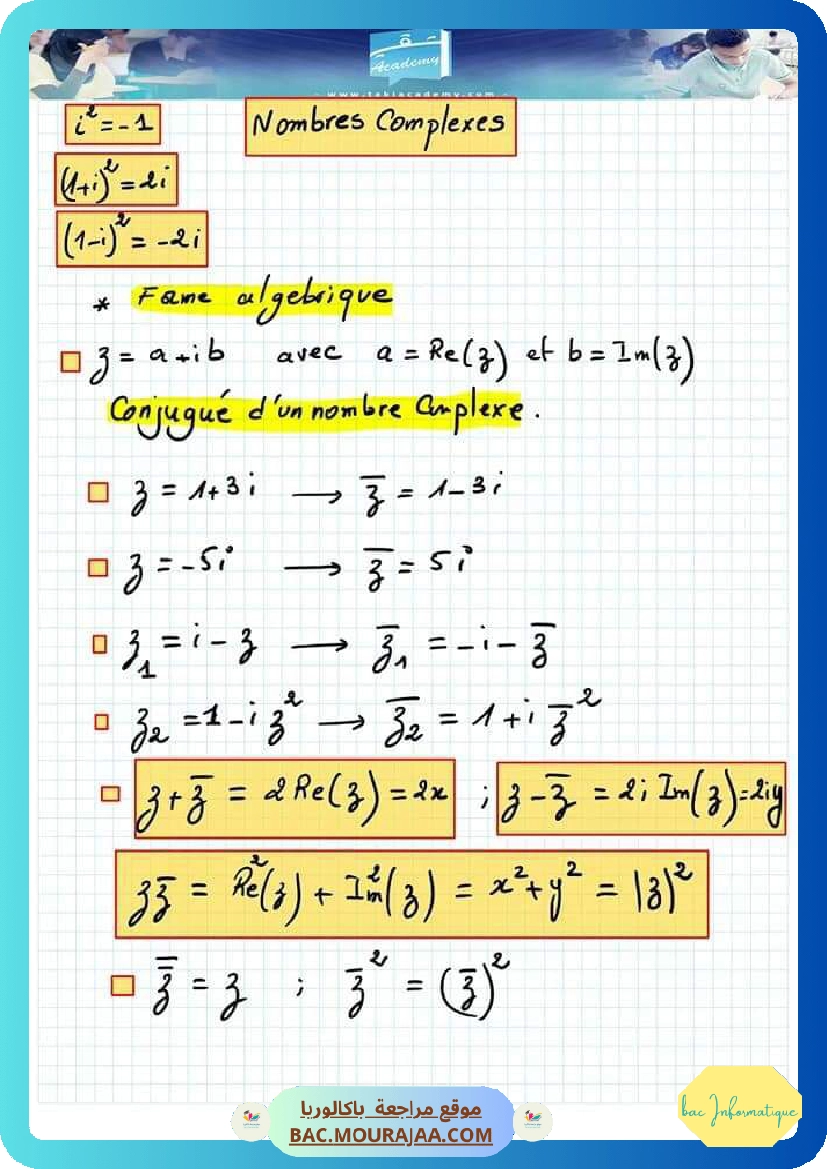 Academy
www.takiacademy.com
i² = -1
Nombres Complexes
(1+i)² = 2i
(1-i)² = -2i
* Forme algebrique
z = a+ib avec a = Re(z) et b = Im(z)
Conjugué d'un nombre Complexe.
z = 1+3i → z̅ = 1-3i
z = -5i → z̅ = 5i
z₁ = i - z → z̅₁ = -i - z̅
z₂ = 1 - i z² → z̅₂ = 1 + i z̅²
z + z̅ = 2 Re(z) = 2x ; z - z̅ = 2i Im(z) = 2iy
z z̅ = Re²(z) + Im²(z) = x² + y² = |z|²
z̿ = z ; z̅² = (z̅)²
موقع مراجعة باكالوريا
BAC.MOURAJAA.COM
bac Informatique